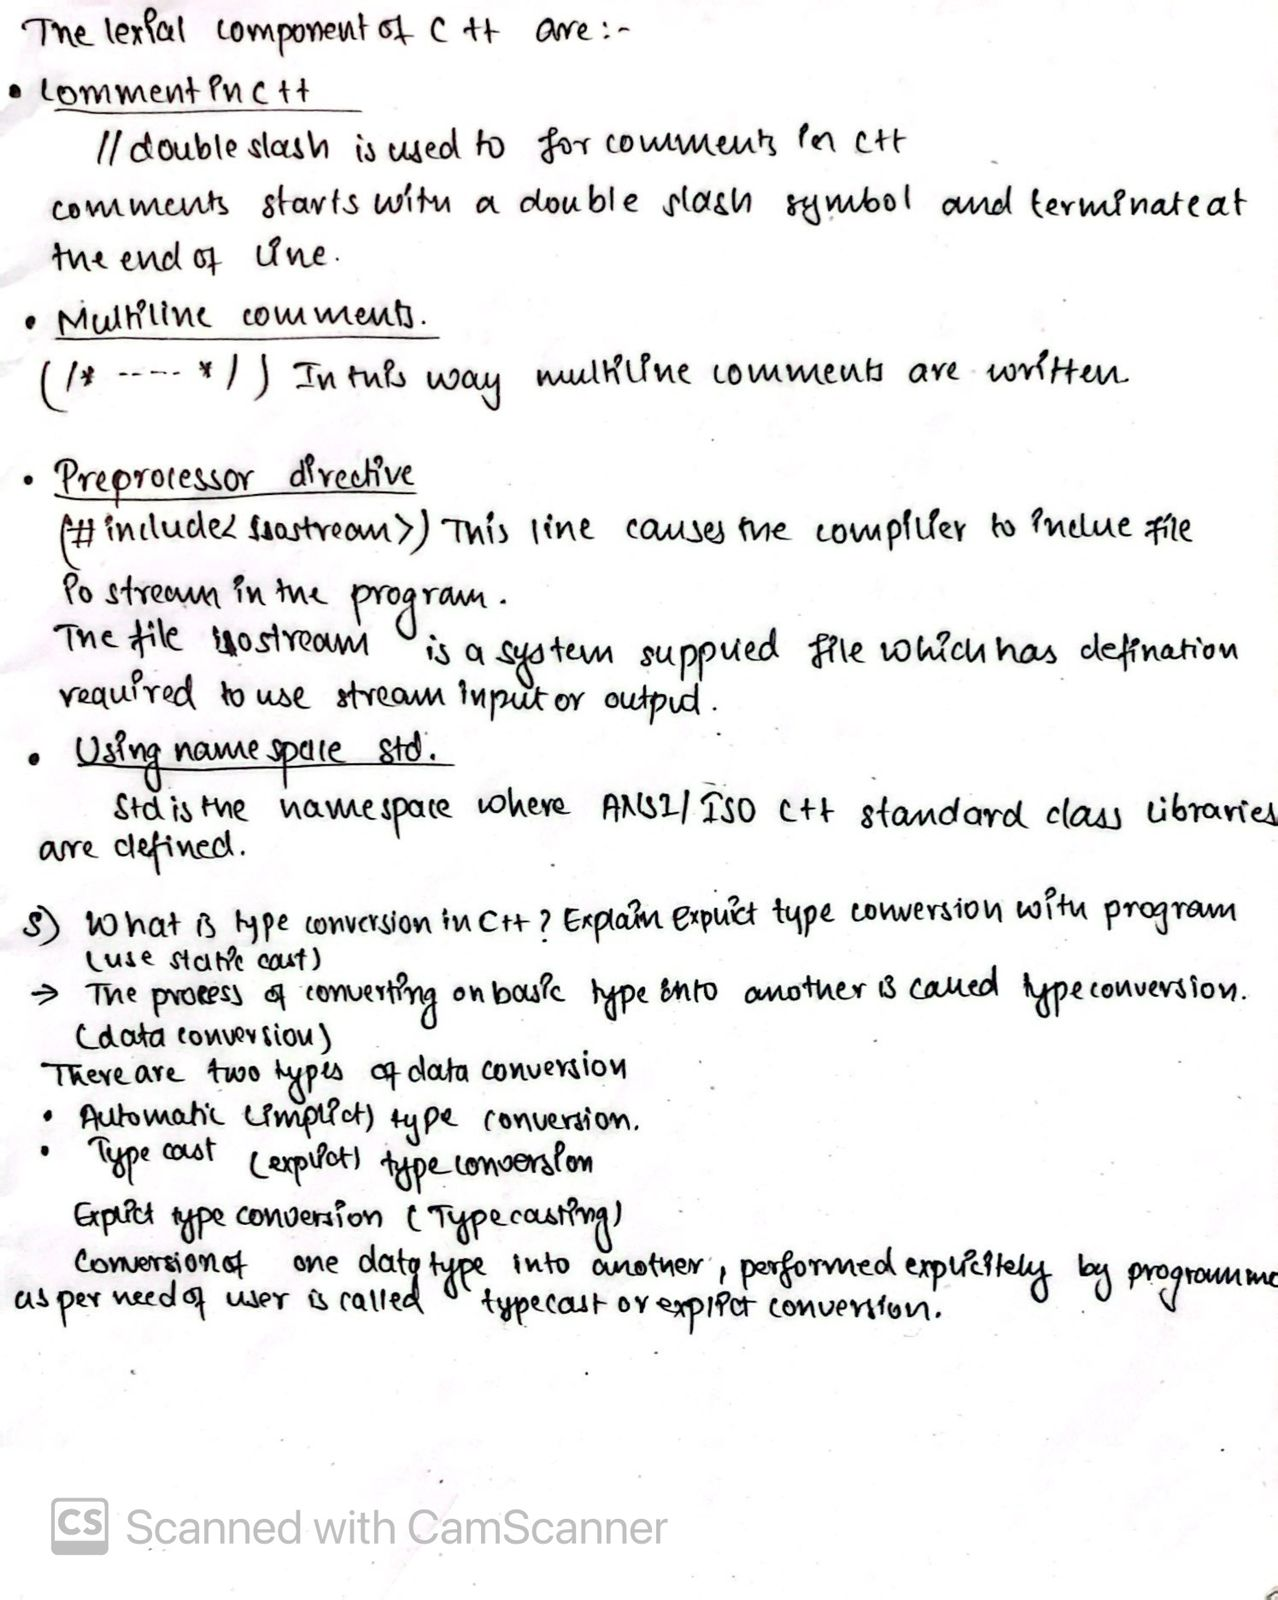 The lexial component of C++ are :-
• Comment in C++
// double slash is used to for comments in C++
comments starts with a double slash symbol and terminate at
the end of line.
• Multiline comments.
( /* ----- */ ) In this way multiline comments are written
• Preprocessor directive
(# include< iostream>) This line causes the compilier to inclue file
io stream in the program.
The file iostream is a system supplied file which has defination
required to use stream input or output.
• Using name space std.
Std is the namespace where ANSI/ISO C++ standard class libraries
are defined.
5) What is type conversion in C++? Explain explict type conversion with program
(use static cast)
→ The process of converting on basic type into another is called type conversion.
(data conversion)
There are two types of data conversion
• Automatic (implict) type conversion.
• Type cast (explict) type conversion
Explict type conversion (Typecasting)
Conversion of one data type into another, performed explicitely by programme
as per need of user is called typecast or explict conversion.
CS Scanned with CamScanner